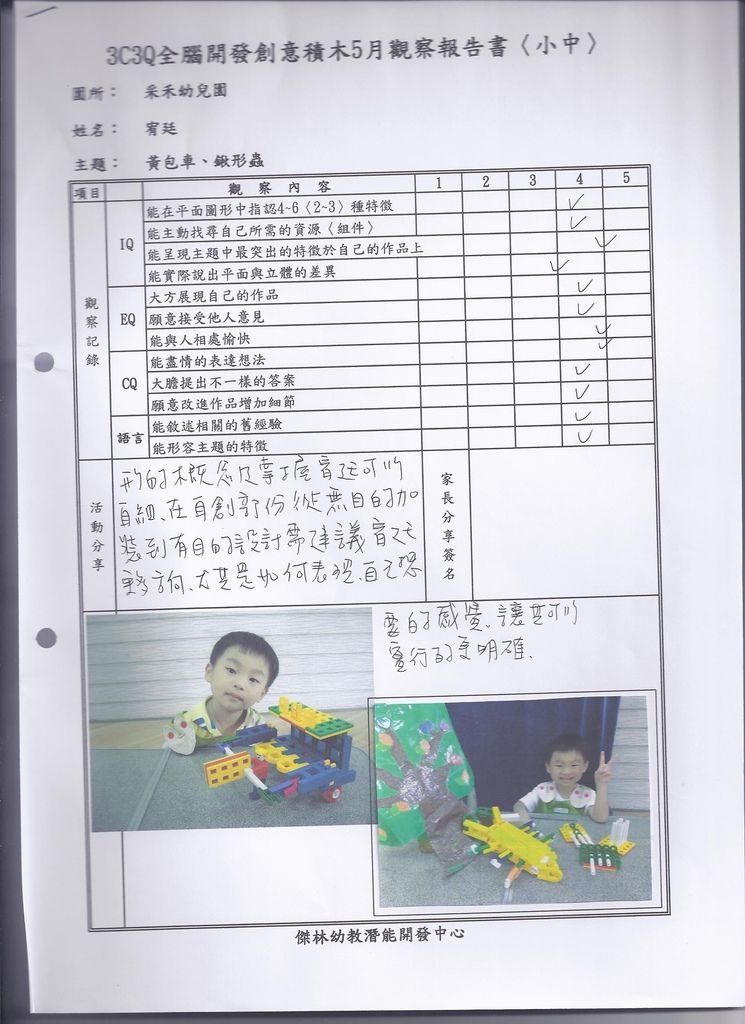 3C3Q全腦開發創意積木5月觀察報告書〈小中〉
園所： 采禾幼兒園
姓名： 宥廷
主題： 黃包車、鍬形蟲
項目 觀察內容 1 2 3 4 5
觀察記錄
IQ
能在平面圖形中指認4~6〈2~3〉種特徵
能主動找尋自己所需的資源〈組件〉
能呈現主題中最突出的特徵於自己的作品上
能實際說出平面與立體的差異
EQ
大方展現自己的作品
願意接受他人意見
能與人相處愉快
CQ
能盡情的表達想法
大膽提出不一樣的答案
願意改進作品增加細節
語言
能敘述相關的舊經驗
能形容主題的特徵
活動分享
形的概念及掌握宥廷可以
自組、在自創部份從無目的加
裝到有目的設計需建議宥廷
方向、尤其是如何表現自己想
要的感覺、讓其可以
實行的更明確、
家長分享簽名
傑林幼教潛能開發中心